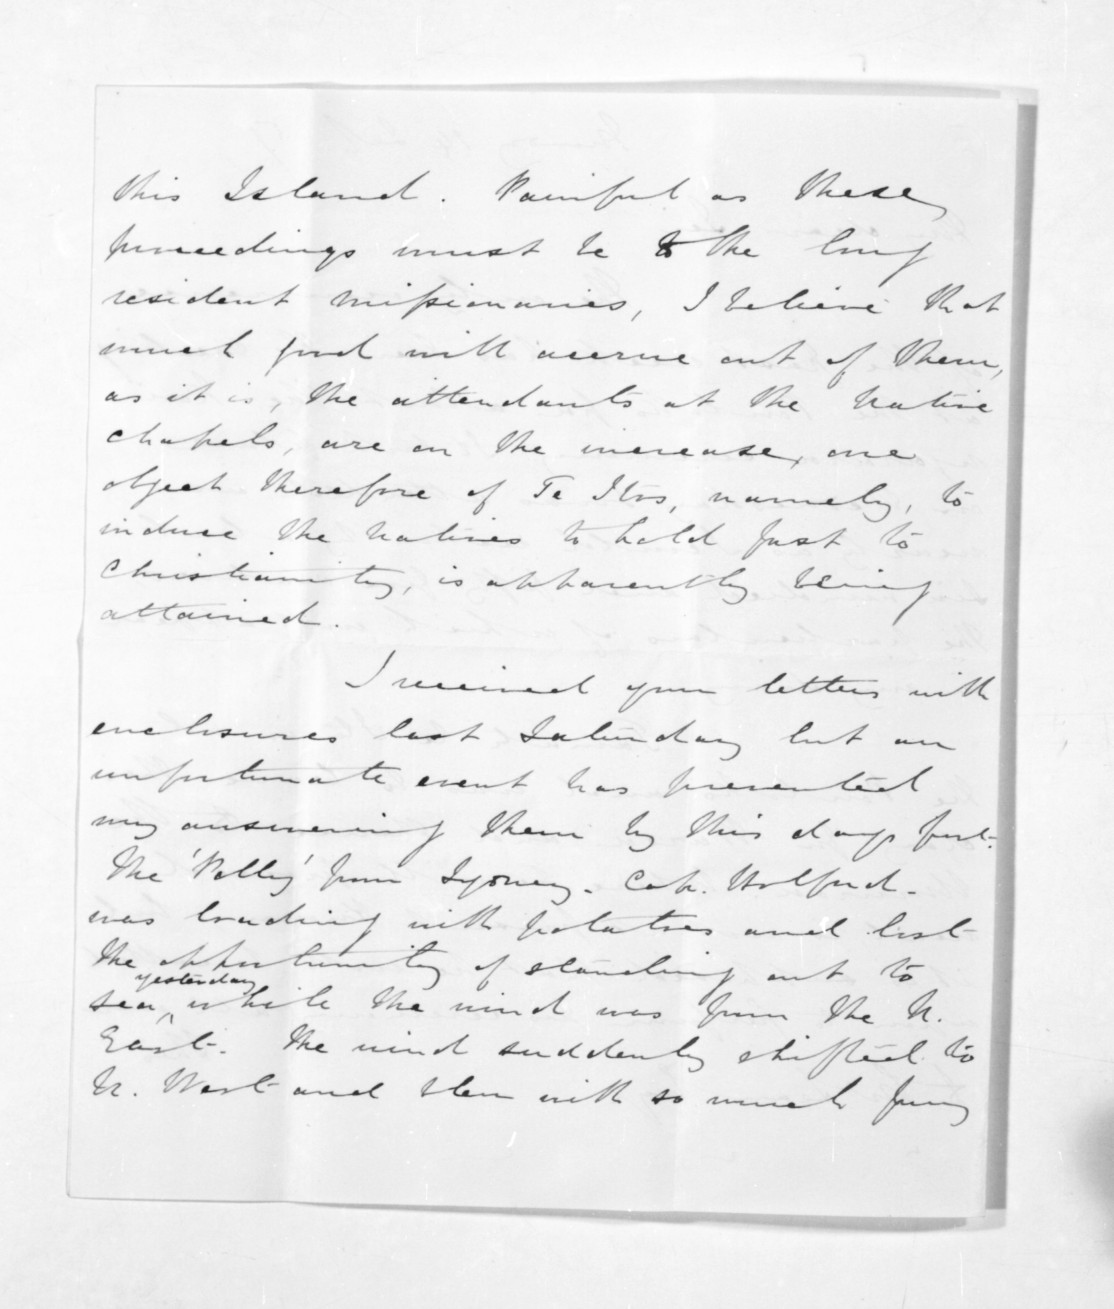 this Island. Painful as these
proceedings must be to the long
resident missionaries, I believe that
much good will accrue out of them,
as it is, the attendants at the native
chapels, are on the increase, one
object therefore of Te Itos, namely, to
induce the natives to hold fast to
Christianity, is apparently being
attained.
I received your letters with
enclosures last Saturday but an
unfortunate event has prevented
my answering them by this days post.
The 'Polly' from Sydney. Cap. Holford.
was loading with potatoes and lost
the opportunity of standing out to
sea, yesterday while the wind was from the N.
East. The wind suddenly shifted to
N. West and blew with so much fury